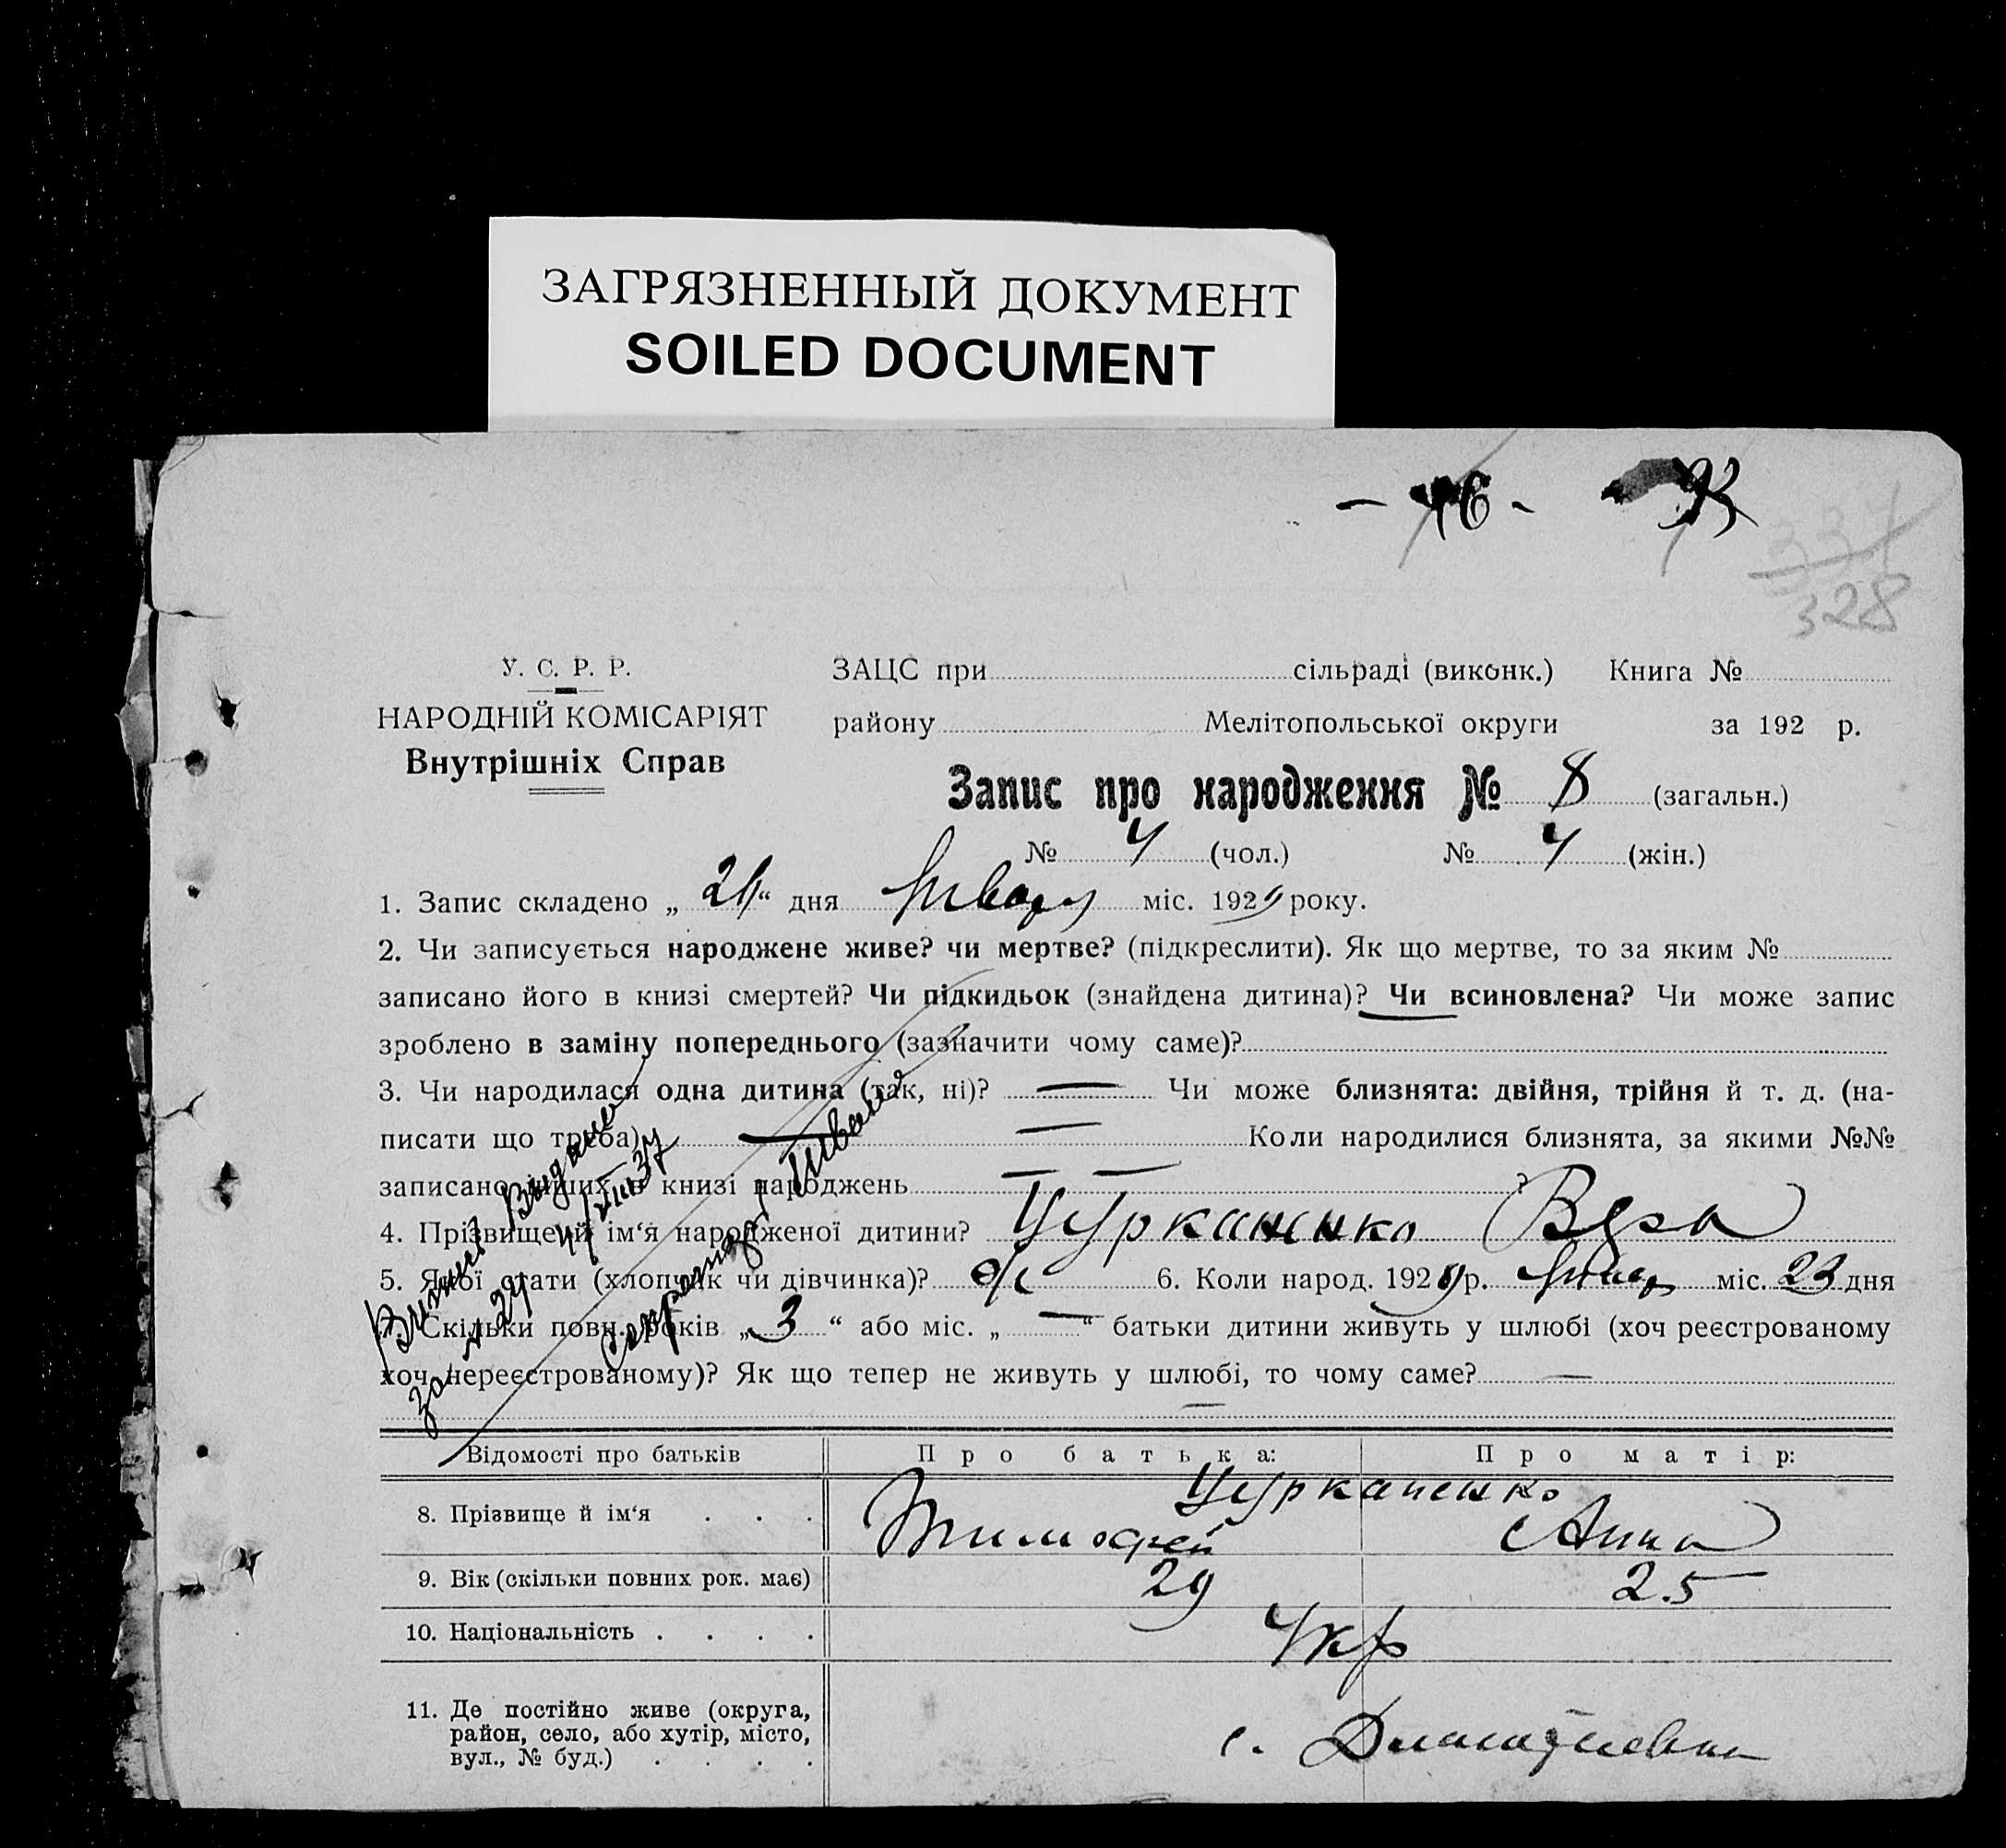 ЗАГРЯЗНЕННЫЙ ДОКУМЕНТ
SOILED DOCUMENT
328
У. С. Р. Р.
НАРОДНІЙ КОМІСАРІЯТ
Внутрішніх Справ
ЗАЦС при сільраді (виконк.) Книга №
району Мелітопольської округи за 192 р.
Запис про народження № 8 (загальн.)
№ 4 (чол.) № 4 (жін.)
1. Запис складено „ “ дня міс. 1929 року.
2. Чи записується народжене живе? чи мертве? (підкреслити). Як що мертве, то за яким №
записано його в книзі смертей? Чи підкидьок (знайдена дитина)? Чи всиновлена? Чи може запис
зроблено в заміну попереднього (зазначити чому саме)?
3. Чи народилася одна дитина (так, ні)? — Чи може близнята: двійня, трійня й т. д. (на-
писати що треба) — — Коли народилися близнята, за якими №№
записано инших в книзі народжень — — ?
4. Прізвище й ім‘я народженої дитини? Цурканенко Вера
5. Якої стати (хлопчик чи дівчинка)? ж 6. Коли народ. 1929 р. міс. 23 дня
7. Скільки повн. років „ 3 “ або міс. „ — “ батьки дитини живуть у шлюбі (хоч реєстрованому
хоч нереєстрованому)? Як що тепер не живуть у шлюбі, то чому саме? —
—
Відомості про батьків Про батька: Про матір:
8. Прізвище й ім‘я . . . Цурканенко
Тимофей Анна
9. Вік (скільки повних рок. має) 29 25
10. Національність . . . . Укр
11. Де постійно живе (округа,
район, село, або хутір, місто,
вул., № буд.) . . . . с.